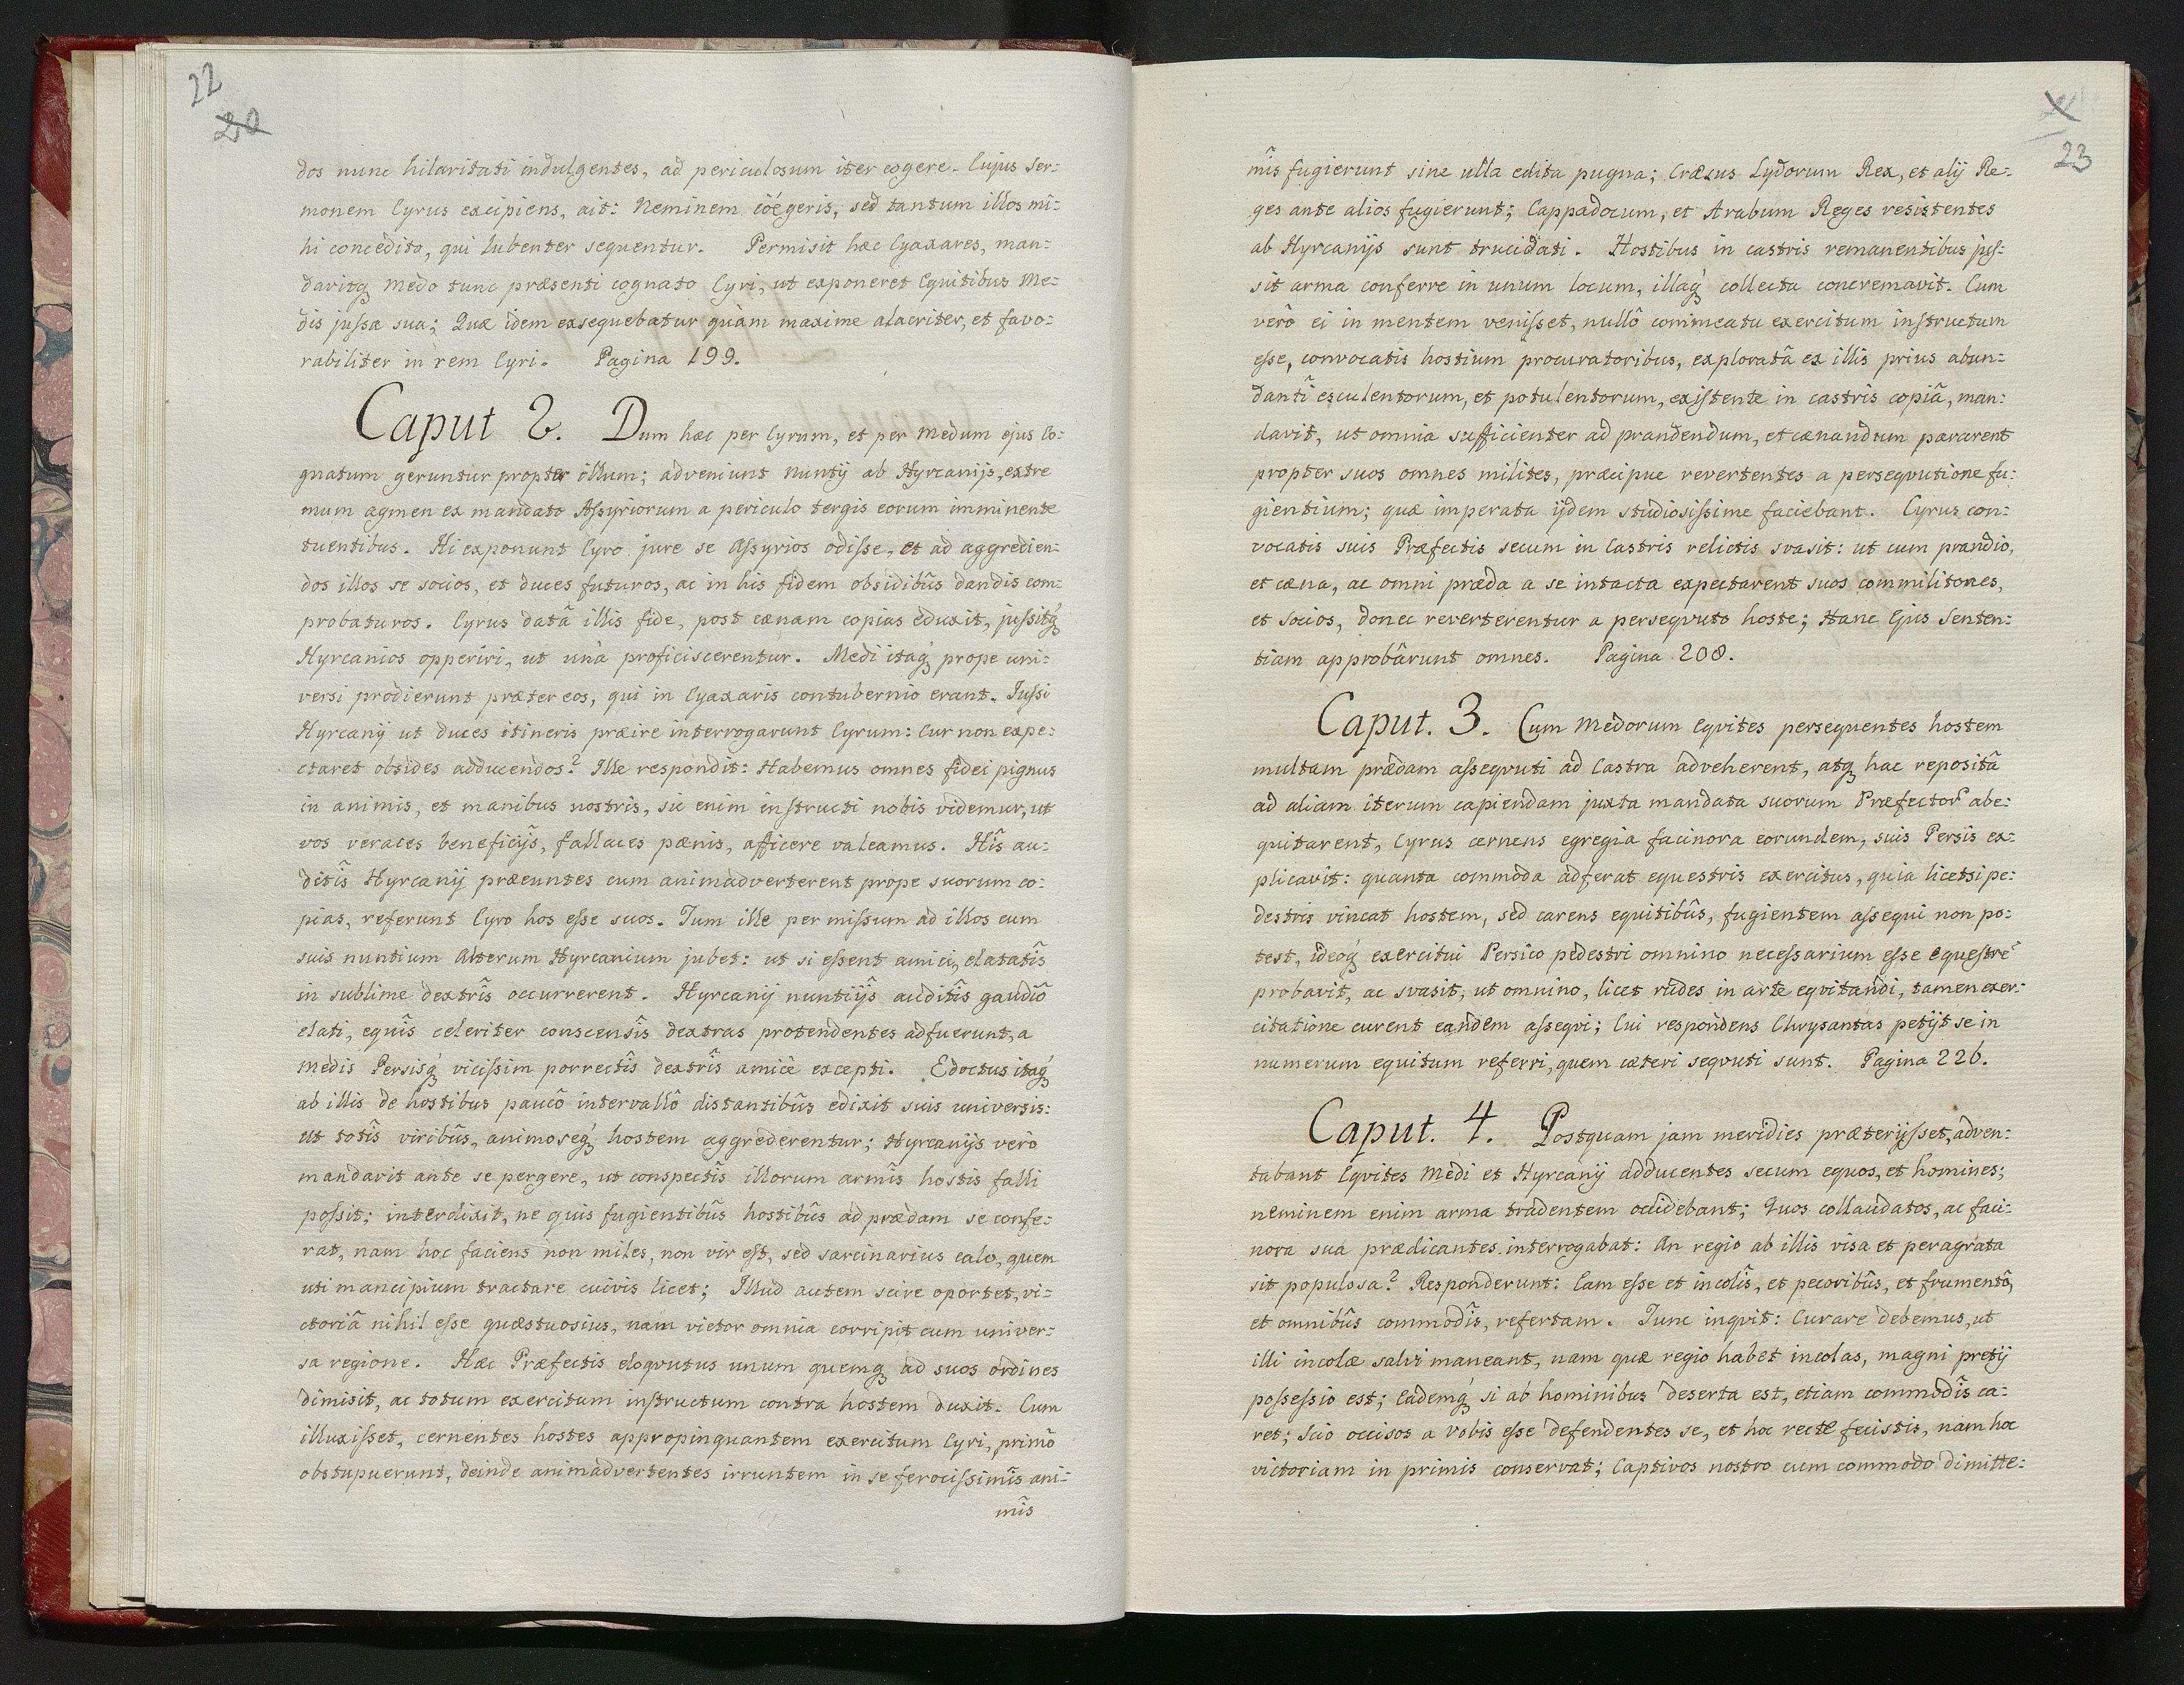 22
20
dos nunc hilaritati indulgentes, ad periculosum iter cogere. Cujus ser:
monem Cyrus excipiens, ait: Neminem cöégeris, sed tantum illos mi:
hi concedito, qui lubenter sequentur. Permisit hæc Cyaxares, man:
davitq́ Medo tunc præsenti cognato Cyri, ut exponeret Equitibus Me:
dis jussa sua; Quæ idem exsequebatur quàm maxime alacriter, et favo:
rabiliter in rem Cyri. Pagina 199.
Caput 2. Dum hæc per Cyrum, et per Medum ejus Co:
gnatum geruntur propter illum; adveniunt Nuntij ab Hyrcanijs, extre
mum agmen ex mandato Assyriorum a periculo tergis eorum imminente
tuentibus. Hi exponunt Cyro jure se Assyrios odisse, et ad aggredien:
dos illos se socios, et duces futuros, ac in his fidem obsidibûs dandis com:
probaturos. Cyrus datâ illis fide, post cænam copias eduxit, jussitq́
Hyrcanios opperiri, ut unà proficiscerentur. Medi itaq́ prope uni:
versi prodierunt præter eos, qui in Cyaxaris contubernio erant. Jussi
Hyrcanij ut duces itineris præire interrogarunt Cyrum: Cur non expe:
ctaret obsides adducendos? Ille respondit: Habemus omnes fidei pignus
in animis, et manibus nostris, sic enim instructi nobis videmur, ut
vos veraces beneficijs, fallaces pænis, afficere valeamus. Hîs au:
ditîs Hyrcanij præeuntes cum animadverterent prope suorum co:
pias, referunt Cyro hos esse suos. Tum ille per missum ad illos cum
suis nuntium alterum Hyrcanium jubet: ut si essent amici, elatatîs
in sublime dextrîs occurrerent. Hyrcanij nuntijs auditîs gaudiô
elati, equîs celeriter conscensîs dextras protendentes adfuerunt, a
Medis Persisq́ vicissim porrectîs dextrîs amicè excepti. Edoctus itaq́
ab illis de hostibus paucô intervallô distantibûs edixit suis universis:
ut totîs viribûs, animoseq́ hostem aggrederentur; Hyrcanijs verò
mandavit ante se pergere, ut conspectîs illorum armîs hostis falli
possit; interdixit, ne quis fugientibûs hostibûs ad prædam se confe:
rat, nam hoc faciens non miles, non vir est, sed sarcinarius calo, quem
uti mancipium tractare cuivis licet; Illud autem scire oportet, vi:
ctoriâ nihil esse quæstuosius, nam victor omnia corripit cum univer:
sa regione. Hæc Præfectis eloqvutus unum quemq́ ad suos ordines
dimisit, ac totum exercitum instructum contra hostem duxit. Cum
illuxisset, cernentes hostes appropinquantem exercitum Cyri, primò
obstupuerunt, deinde animadvertentes irruntem in se ferocissimîs ani:
mîs
23
mîs fugierunt sine ulla edita pugna; Cræsus Lydorum Rex, et alij Re:
ges ante alios fugierunt; Cappadocum, et Arabum Reges resistentes
ab Hyrcanijs sunt trucidati. Hostibus in castris remanentibus jus:
sit arma conferre in unum locum, illaq́ collecta concremavit. Cum
verò ei in mentem venisset, nullô commeatu exercitum instructum
esse, convocatis hostium procuratoribus, exploratâ ex illis prius abun:
danti esculentorum, et potulentorum, existente in castris copiâ, man:
davit, ut omnia sufficienter ad prandendum, et cænandum pararent
propter suos omnes milites, præcipue revertentes a perseqvutione fu:
gientium; quæ imperata ijdem studiosissime faciebant. Cyrus con:
vocatis suis Præfectis secum in Castris relictis svasit: ut cum prandio,
et cæna, ac omni præda a se intacta expectarent suos commilitones,
et socios, donec reverterentur a perseqvuto hoste; Hanc Ejus Senten:
tiam approbârunt omnes. Pagina 208.
Caput. 3. Cum Medorum Eqvites persequentes hostem
multam prædam asseqvuti ad Castra adveherent, atq́ hac repositâ
ad aliam iterum capiendam juxta mandata suorum Præfector abe:
quitarent, Cyrus cernens egregia facinora eorundem, suis Persis ex:
plicavit: quanta commoda adferat equestris exercitus, quia licetsi pe:
destris vincat hostem, sed carens equitibûs, fugientem assequi non po:
test, ideoq́ exercitui Persico pedestri omnino necessarium esse equestrē
probavit, ac svasit, ut omnino, licet rudes in arte eqvitandi, tamen exer:
citatione curent eandem asseqvi; Cui respondens Chrysantas petijt se in
numerum equitum referri, quem cæteri seqvuti sunt. Pagina 226.
Caput. 4. Postquam jam meridies præterijsset, adven:
tabant Eqvites Medi et Hyrcanij adducentes secum equos, et homines;
neminem enim arma tradentem occidebant; Quos collaudatos, ac faci:
nora sua prædicantes interrogabat: An regio ab illis visa et peragrata
sit populosa? Responderunt: Eam esse et incolîs, et pecoribûs, et frumentô,
et omnibûs commodîs, refertam. Tunc inqvit: Curare debemus, ut
illi incolæ salvi maneant, nam quæ regio habet incolas, magni pretij
possessio est; Eademq́ si ab hominibus deserta est, etiam commodîs ca:
ret; Scio occisos a vobis esse defendentes se, et hoc recte fecistis, nam hoc
victoriam in primis conservat; Captivos nostro cum commodo dimitte: